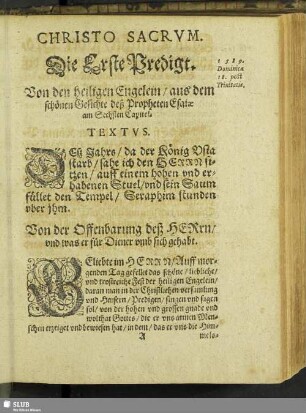 CHRISTO SACRVM.
Die Erste Predigt.
1589.
Dominica
18. post
Trinitatis.
Von den heiligen Engelein / aus dem
schönen Gesichte deß Propheten Esaiæ
am Sechsten Capitel.
TEXTVS.
DEß Jahrs / da der König Vsia
starb / sahe ich den HERRN si-
tzen / auff einem hohen vnd er-
habenen Stuel / vnd sein Saum
füllet den Tempel / Seraphim stunden
vber jhm.
Von der Offenbarung deß HErrn /
vnd was er für Diener vmb sich gehabt.
GEliebte im HERRN / Auff mor-
genden Tag gefellet das schöne / liebliche /
und trostreiche Fest der heiligen Engelein /
daran man in der Christlichen versamlung
und Hertzen / Predigen / singen und sagen
sol / von der hohen und grossen gnade und
wolthat Gottes / die er uns armen Men-
schen erzeiget und bewiesen hat / in dem / das er uns die Him-
A
melo-
SLUB